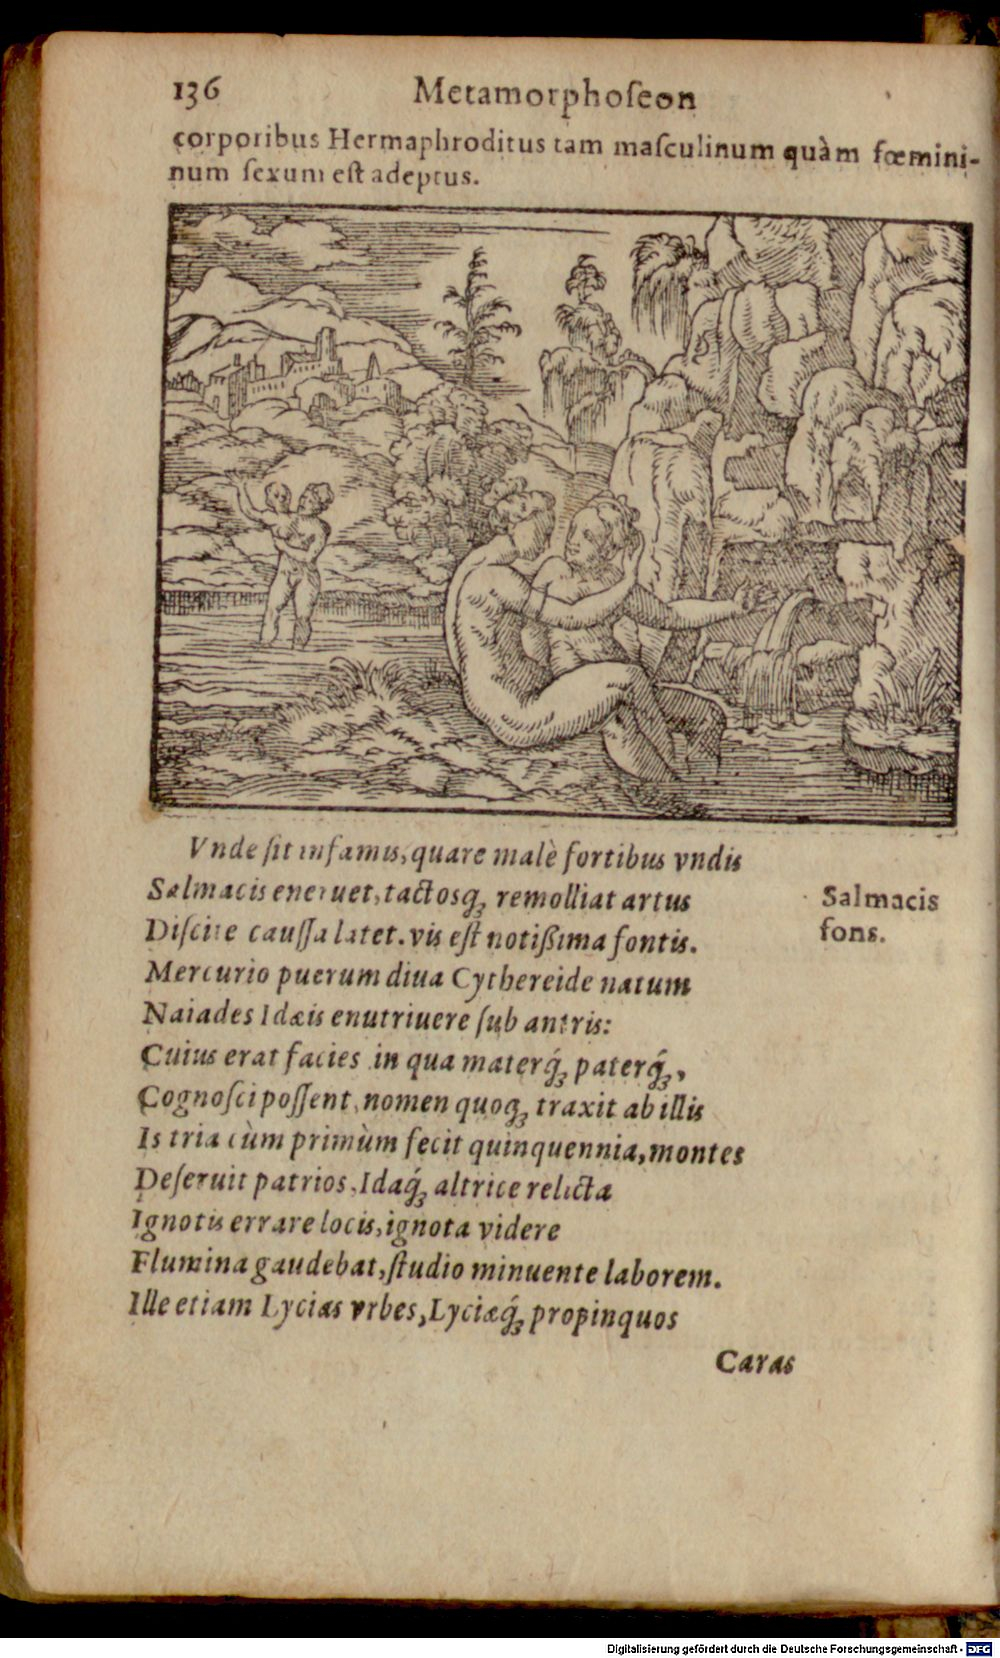 136 Metamorphoſeon
corporibus Hermaphroditus tam maſculinum quàm fœmini-
num ſexum eſt adeptus.
Vnde ſit infamis, quare malè fortibus vndis
Salmacis eneruet, tactosq́; remolliat artus
Salmacis
Diſcite cauſſa latet. vis eſt notißima fontis.
fons.
Mercurio puerum diua Cythereide natum
Naiades Idæis enutriuere ſub antris:
Cuius erat facies in qua materq́; paterq́;,
Cognoſci poſſent, nomen quoq; traxit ab illis
Is tria cùm primùm fecit quinquennia, montes
Deſeruit patrios, Idaq́; altrice relicta
Ignotis errare locis, ignota videre
Flumina gaudebat, ſtudio minuente laborem.
Ille etiam Lycias vrbes, Lyciæq́; propinquos
Caras
Digitalisierung gefördert durch die Deutsche Forschungsgemeinschaft - DFG